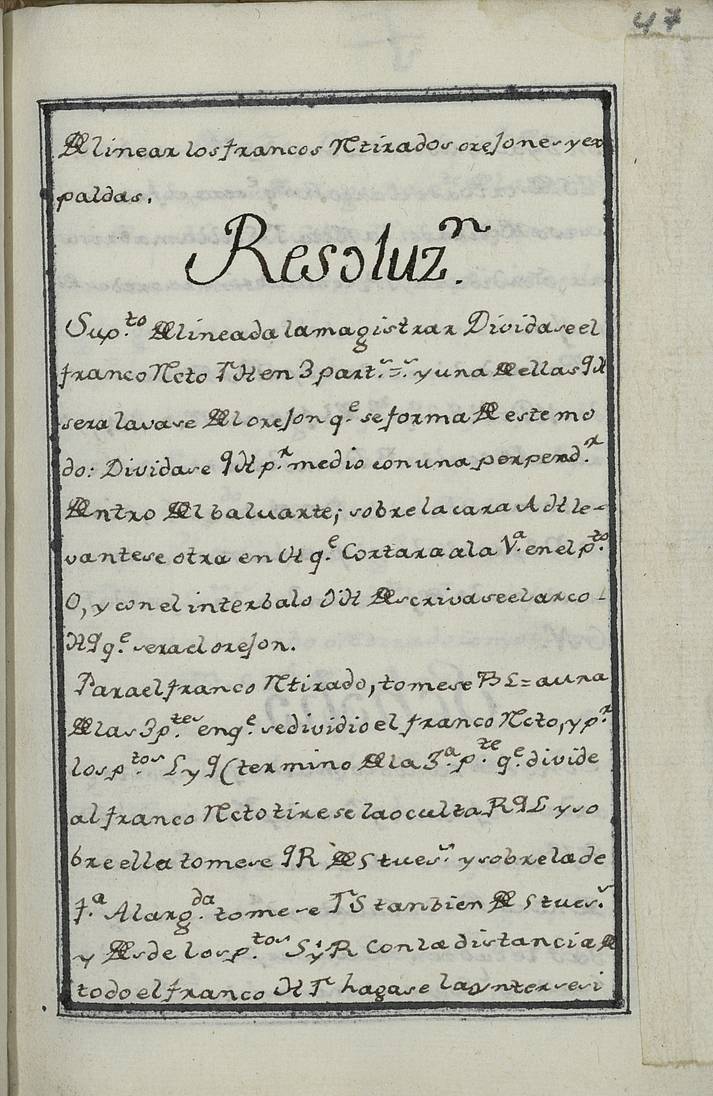 47
Delinear los francos Retirados orejones y ex
paldas.
Resoluz.n
Sup.to Delineada la magistrar Dividase el
franco Recto TH en 3 part.s =.s y una De ellas qH
sera la vase Del orejon q.e se forma De este mo
do: Dividase qH p.r medio con una perpend.r
Dentro Del baluarte; sobre la cara AH le-
vantese otra en H q.e Cortara a la V.a en el p.to
O, y con el interbalo OH Descrivase el arco
Hq q.e sera el orejon.
Para el franco Retirado, tomese BL = a una
De las 3 p.tes en q.e se dividio el franco Recto, y p.r
los p.tos L y q (termino De la 3.a p.te q.e divide
al franco Recto tirese la oculta RqL y so
bre ella tomese qR De 5 tues.s y sobre la de
f.a Alarg.da tomese TS tanbien De 5 tues.s
y Desde los p.tos S y R con la distancia De
todo el franco HT hagase la ynterseci